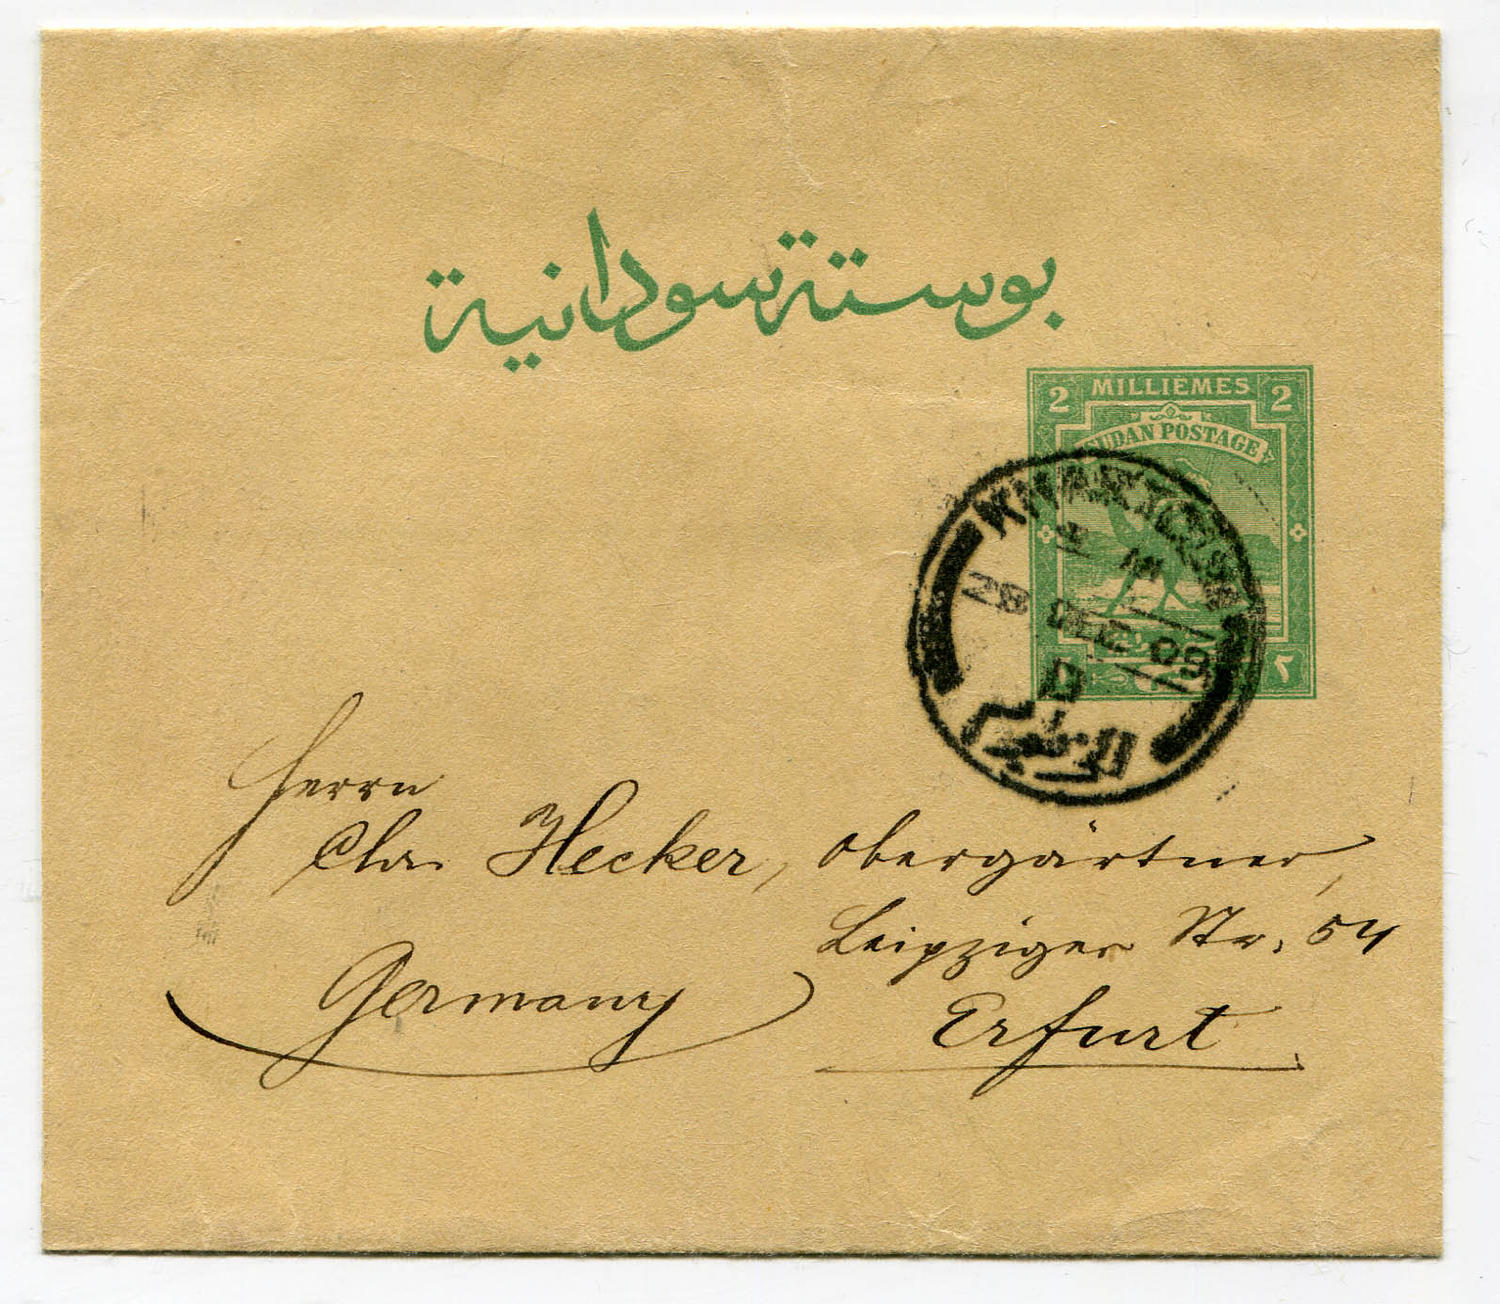 بوستة سودانية
2 MILLIEMES 2
SUDAN POSTAGE
٢
KHARTOUM
28 DEC 09
الخرطوم
Herrn
Chr. Hecker, Obergärtner,
Leipziger Str. 54
Germany
Erfurt